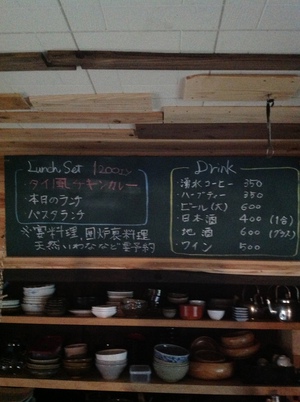 Lunch Set 1200より
・タイ風チキンカレー
・本日のランチ
・パスタランチ
※宴料理、囲炉裏料理
天然いわななど要予約
Drink
・湧水コーヒー 350
・ハーブティー 350
・ビール(大) 600
・日本酒 400 (1合)
・地酒 600 (グラス)
・ワイン 500